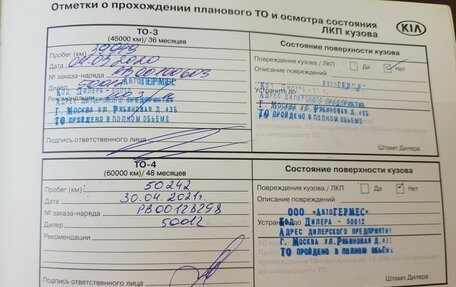 Отметки о прохождении планового ТО и осмотра состояния
ЛКП кузова
KIA
ТО-3
(45000 км) / 36 месяцев
Пробег (км)
Дата 04.03.2020
№ заказа-наряда РВ00100603
Дилер 50012
АвтоГЕРМЕС
Код Дилера - 5001
Адрес дилерского предприятия
Г. Москва ул. Рябиновая д.43Б
ТО пройдено в полном объеме
Подпись ответственного лица
Состояние поверхности кузова
Повреждения кузова / ЛКП Да Нет
Описание повреждений
АвтоГЕРМЕС
Код Дилера
Устранить до
Адрес дилерского предприятия
Г. Москва ул. Рябиновая д.43Б
ТО пройдено в полном объеме
Штамп Дилера
ТО-4
(60000 км) / 48 месяцев
Пробег (км) 50242
Дата 30.04.2021г.
№ заказа-наряда РВ00128298
Дилер 50012
Рекомендации
Подпись ответственного лица
Состояние поверхности кузова
Повреждения кузова / ЛКП Да Нет
Описание повреждений
ООО "АвтоГЕРМЕС"
Код Дилера - 50012
Устранить до
Адрес дилерского предприятия
Г. Москва ул. Рябиновая д.43Б
ТО пройдено в полном объеме
Штамп Дилера